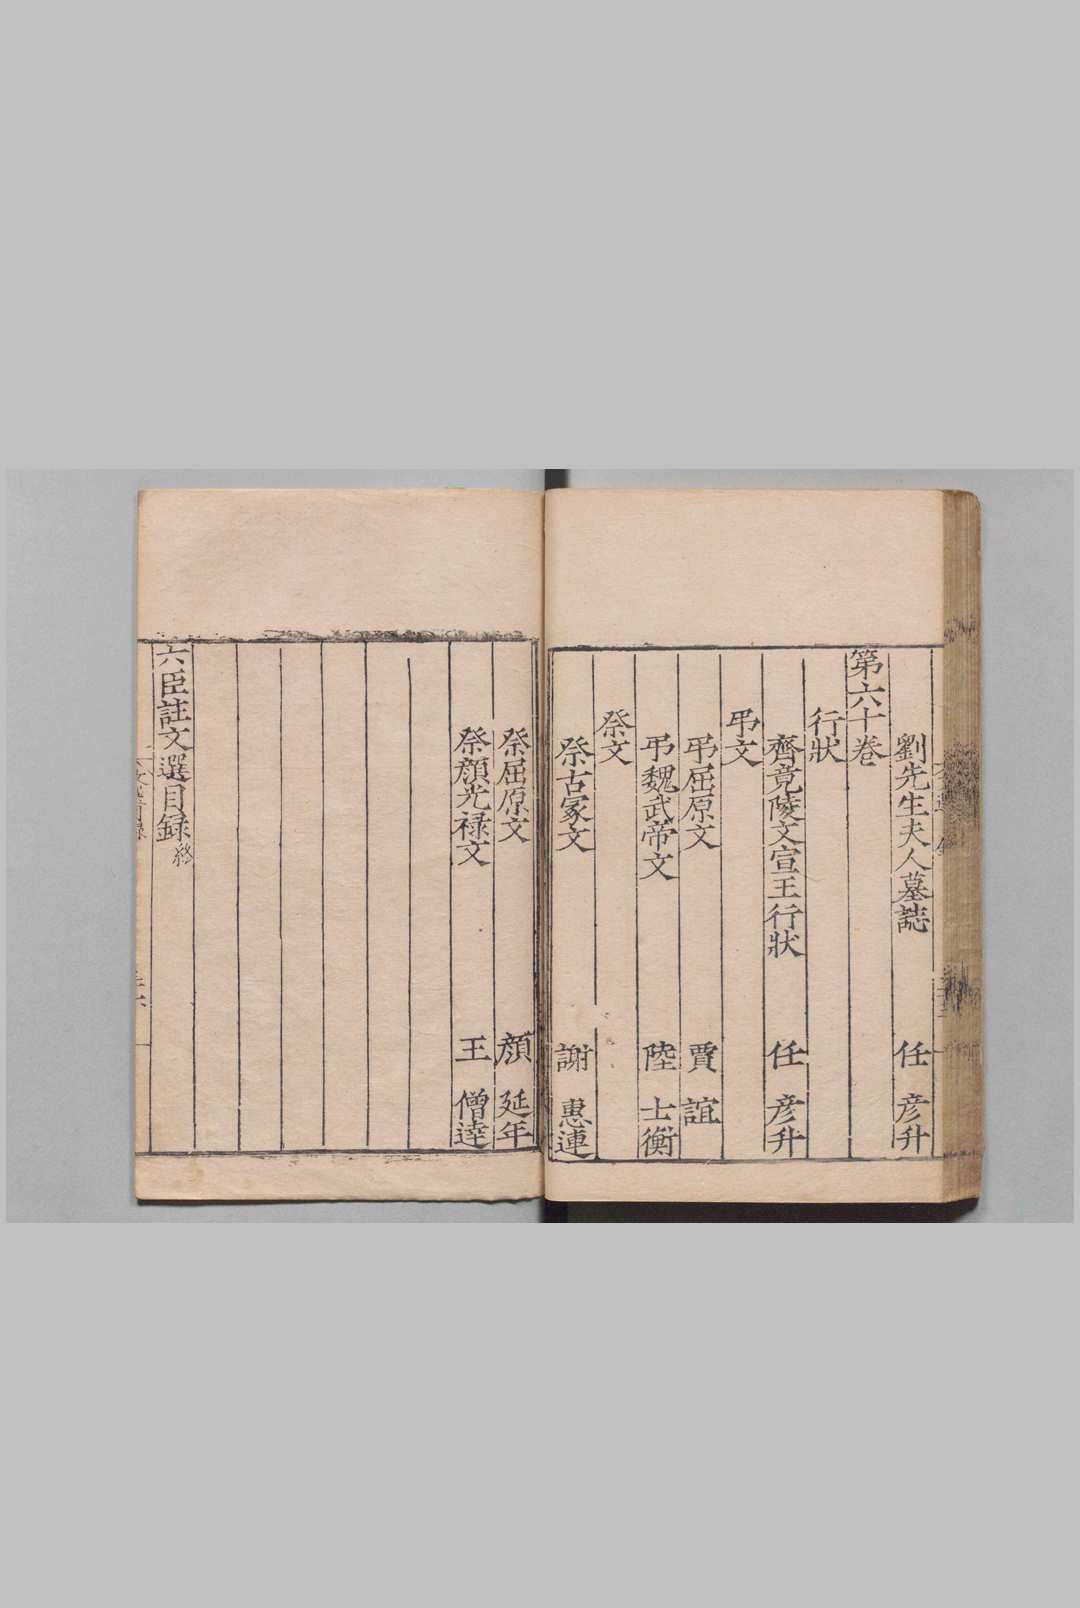 劉先生夫人墓誌 任彦升
第六十卷
行狀
齊竟陵文宣王行狀 任彦升
弔文
弔屈原文 賈誼
弔魏武帝文 陸士衡
祭文
祭古冢文 謝惠連
祭屈原文 顔延年
祭顔光禄文 王僧達
六臣註文選目録終